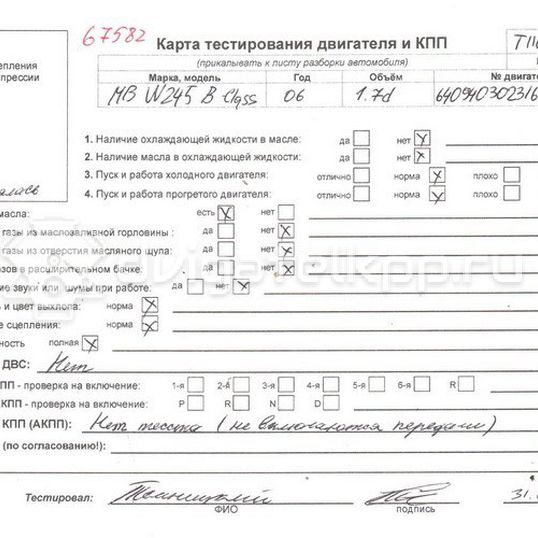 67582
Карта тестирования двигателя и КПП
(прикалывать к листу разборки автомобиля)
Марка, модель Год Объём № двигат
MB W245 B-Class 06 1.7d 640940302316
1. Наличие охлаждающей жидкости в масле: да нет
2. Наличие масла в охлаждающей жидкости: да нет
3. Пуск и работа холодного двигателя: отлично норма плохо
4. Пуск и работа прогретого двигателя: отлично норма плохо
масла: есть нет
газы из маслозаливной горловины: да нет
газы из отверстия масляного щупа: да нет
зов в расширительном бачке: да нет
ие звуки или шумы при работе: да нет
ь и цвет выхлопа: норма
е сцепления: норма
ность полная
ДВС: Нет
ПП - проверка на включение: 1-я 2-я 3-я 4-я 5-я 6-я R
КПП - проверка на включение: P R N D
КПП (АКПП): Нет теста (не включаются передачи)
(по согласованию!):
Тестировал:
ФИО подпись
31.
епления
прессии
avigatelkpp.ru